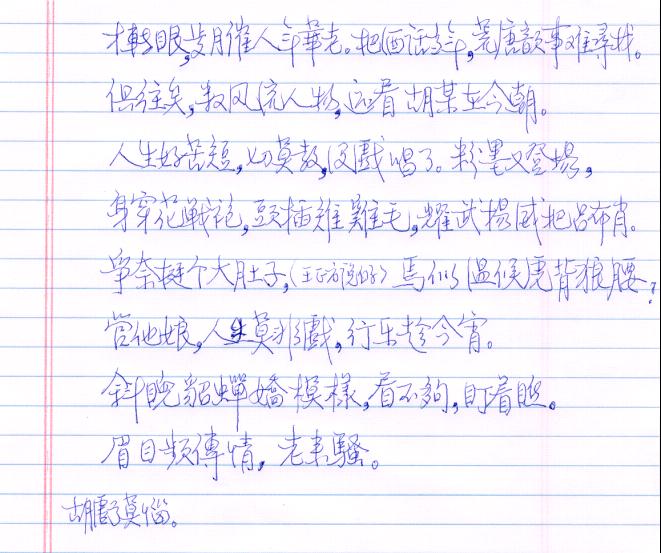 才轉眼,歲月催人年華老。把酒話當年,荒唐韻事难尋找。
俱往矣,数风流人物,还看胡某在今朝。
人生好苦短,切莫教,没戲唱了。粉墨又登場,
身穿花戰袍,頭插雉雞毛,耀武揚威把吕布肖。
爭奈挺个大肚子,(王正方說的) 焉似温候虎背狼腰?
管他娘,人生莫非戲,行乐趁今宵。
斜睨貂蟬嬌模樣,看不夠,盯着瞧。
眉目频傳情,老来騷。
胡鬧莫惱。